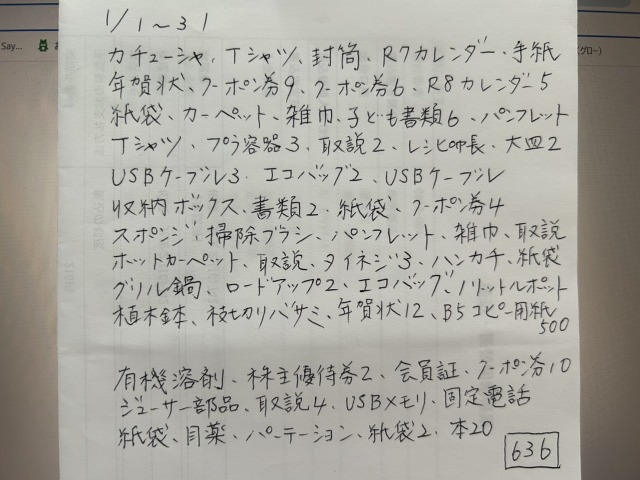 1/1～31
カチューシャ、Tシャツ、封筒、R7カレンダー、手紙
年賀状、クーポン券9、クーポン券6、R8カレンダー5
紙袋、カーペット、雑巾、子ども書類6、パンフレット
Tシャツ、プラ容器3、取説2、レシピ帳、大皿2
USBケーブル3、エコバッグ2、USBケーブル
収納ボックス、書類2、紙袋、クーポン券4
スポンジ、掃除ブラシ、パンフレット、雑巾、取説
ホットカーペット、取説、タイネジ3、ハンカチ、紙袋
グリル鍋、ロードアップ2、エコバッグ、1リットルポット
植木鉢、枝切りバサミ、年賀状12、B5コピー用紙
500
有機溶剤、株主優待券2、会員証、クーポン券10
ジューサー部品、取説4、USBメモリ、固定電話
紙袋、目薬、パーテーション、紙袋2、本20
636